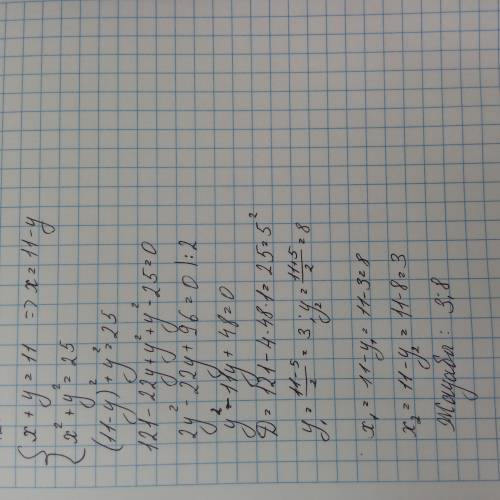 { x + y = 11 => x = 11 - y
x² + y² = 25
(11-y)² + y² = 25
121 - 22y + y² + y² - 25 = 0
2y² - 22y + 96 = 0 | : 2
y² - 11y + 48 = 0
D = 121 - 4·48·1 = 25 = 5²
y₁ = (11-5)/2 = 3 ; y₂ = (11+5)/2 = 8
x₁ = 11 - y₁ = 11 - 3 = 8
x₂ = 11 - y₂ = 11 - 8 = 3
Жауабы : 3; 8